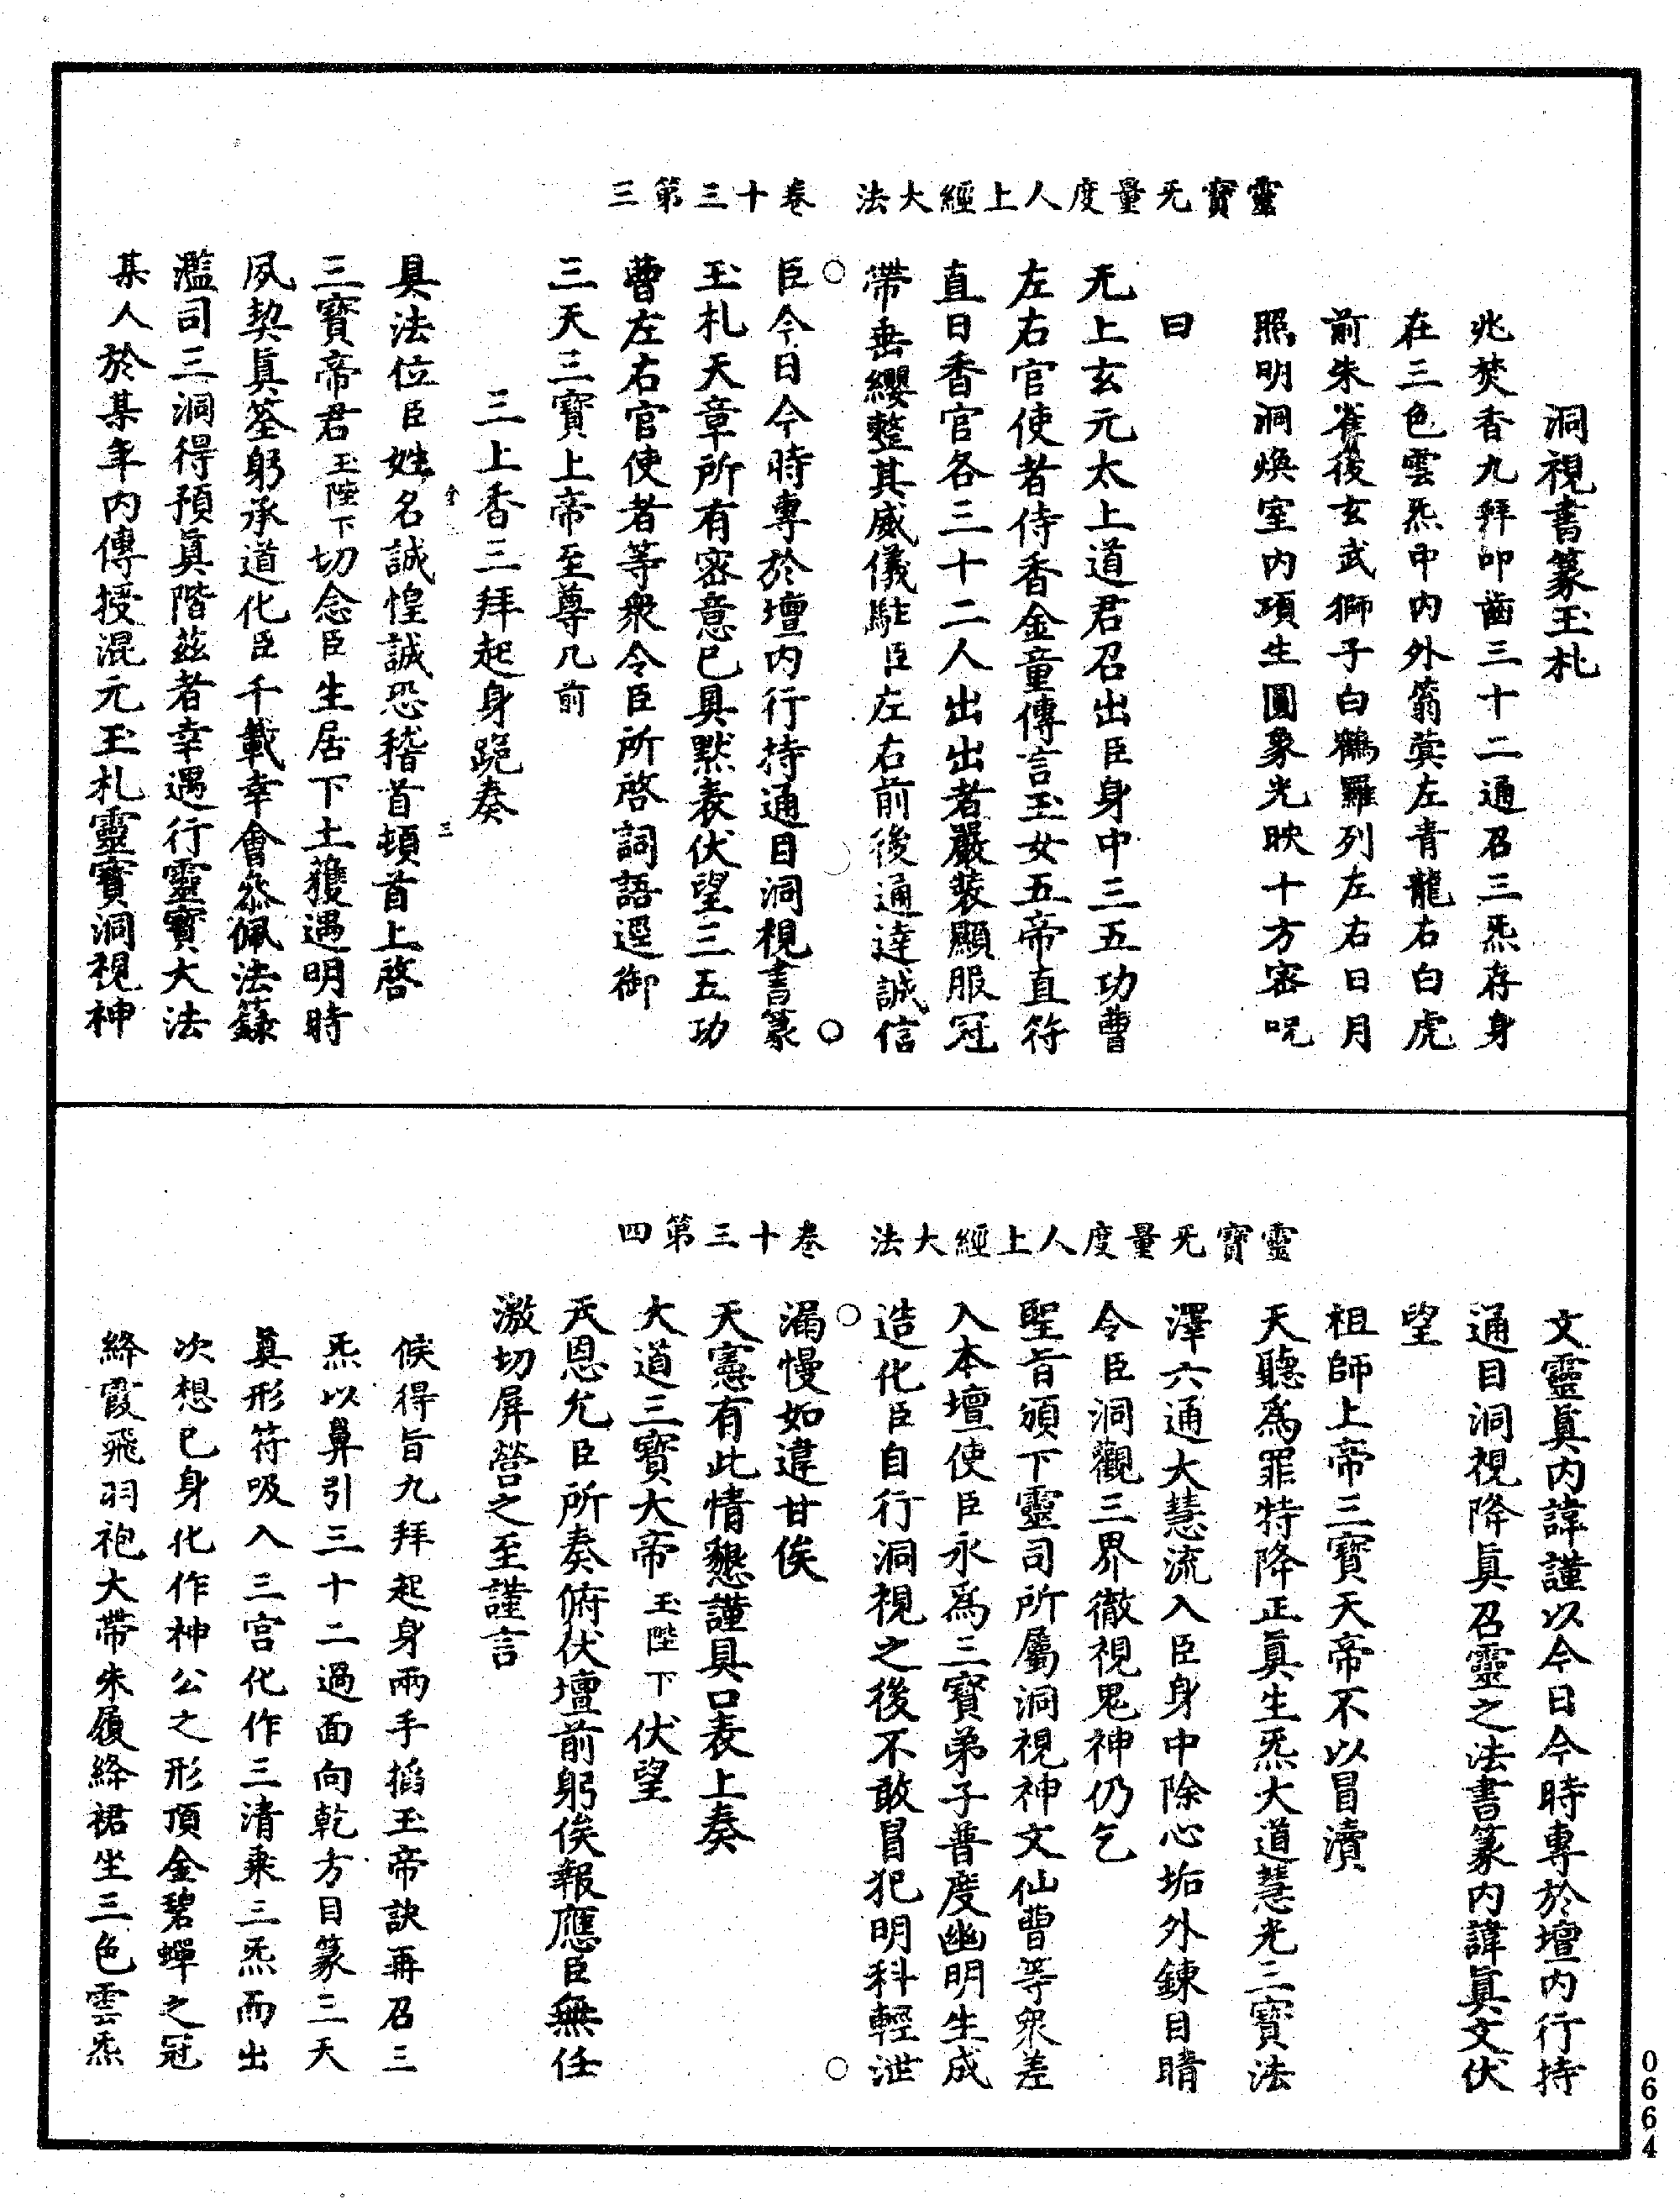 靈寶无量度人上經大法 卷十三第三
洞視書篆玉札
兆焚香九拜叩齒三十二通召三炁存身
在三色雲炁中內外蓊蓂左青龍右白虎
前朱雀後玄武獅子白鶴羅列左右日月
照明洞煥室內項生圓象光映十方密呪
曰
无上玄元太上道君召出臣身中三五功曹
左右官使者侍香金童傳言玉女五帝直符
直日香官各三十二人出出者嚴裝顯服冠
帶垂纓整其威儀駐臣左右前後通達誠信
臣今日今時專於壇內行持通目洞視書篆
玉札天章所有密意已具默表伏望三五功
曹左右官使者等衆令臣所啓詞語逕御
三天三寶上帝至尊几前
三上香三拜起身跪奏
具法位臣姓名誠惶誠恐稽首頓首上啓
三寶帝君玉陛下切念臣生居下土獲遇明時
夙契眞筌躬承道化臣千載幸會叅佩法籙
濫司三洞得預眞階茲者幸遇行靈寶大法
某人於某年內傳授混元玉札靈寶洞視神
靈寶无量度人上經大法 卷十三第四
文靈眞內諱謹以今日今時專於壇內行持
通目洞視降眞召靈之法書篆內諱眞文伏
望
祖師上帝三寶天帝不以冒瀆
天聽爲罪特降正眞生炁大道慧光三寶法
澤六通大慧流入臣身中除心垢外鍊目睛
令臣洞觀三界徹視鬼神仍乞
聖旨頒下靈司所屬洞視神文仙曹等衆差
入本壇使臣永爲三寶弟子普度幽明生成
造化臣自行洞視之後不敢冒犯明科輕泄
漏慢如違甘俟
天憲有此情懇謹具口表上奏
大道三寶大帝玉陛下伏望
天恩允臣所奏俯伏壇前躬俟報應臣無任
激切屏營之至謹言
候得旨九拜起身兩手掐玉帝訣再召三
炁以鼻引三十二過面向乾方目篆三天
眞形符吸入三宮化作三清乘三炁而出
次想已身化作神公之形頂金碧蟬之冠
絳霞飛羽袍大帶朱履絳裙坐三色雲炁
0664